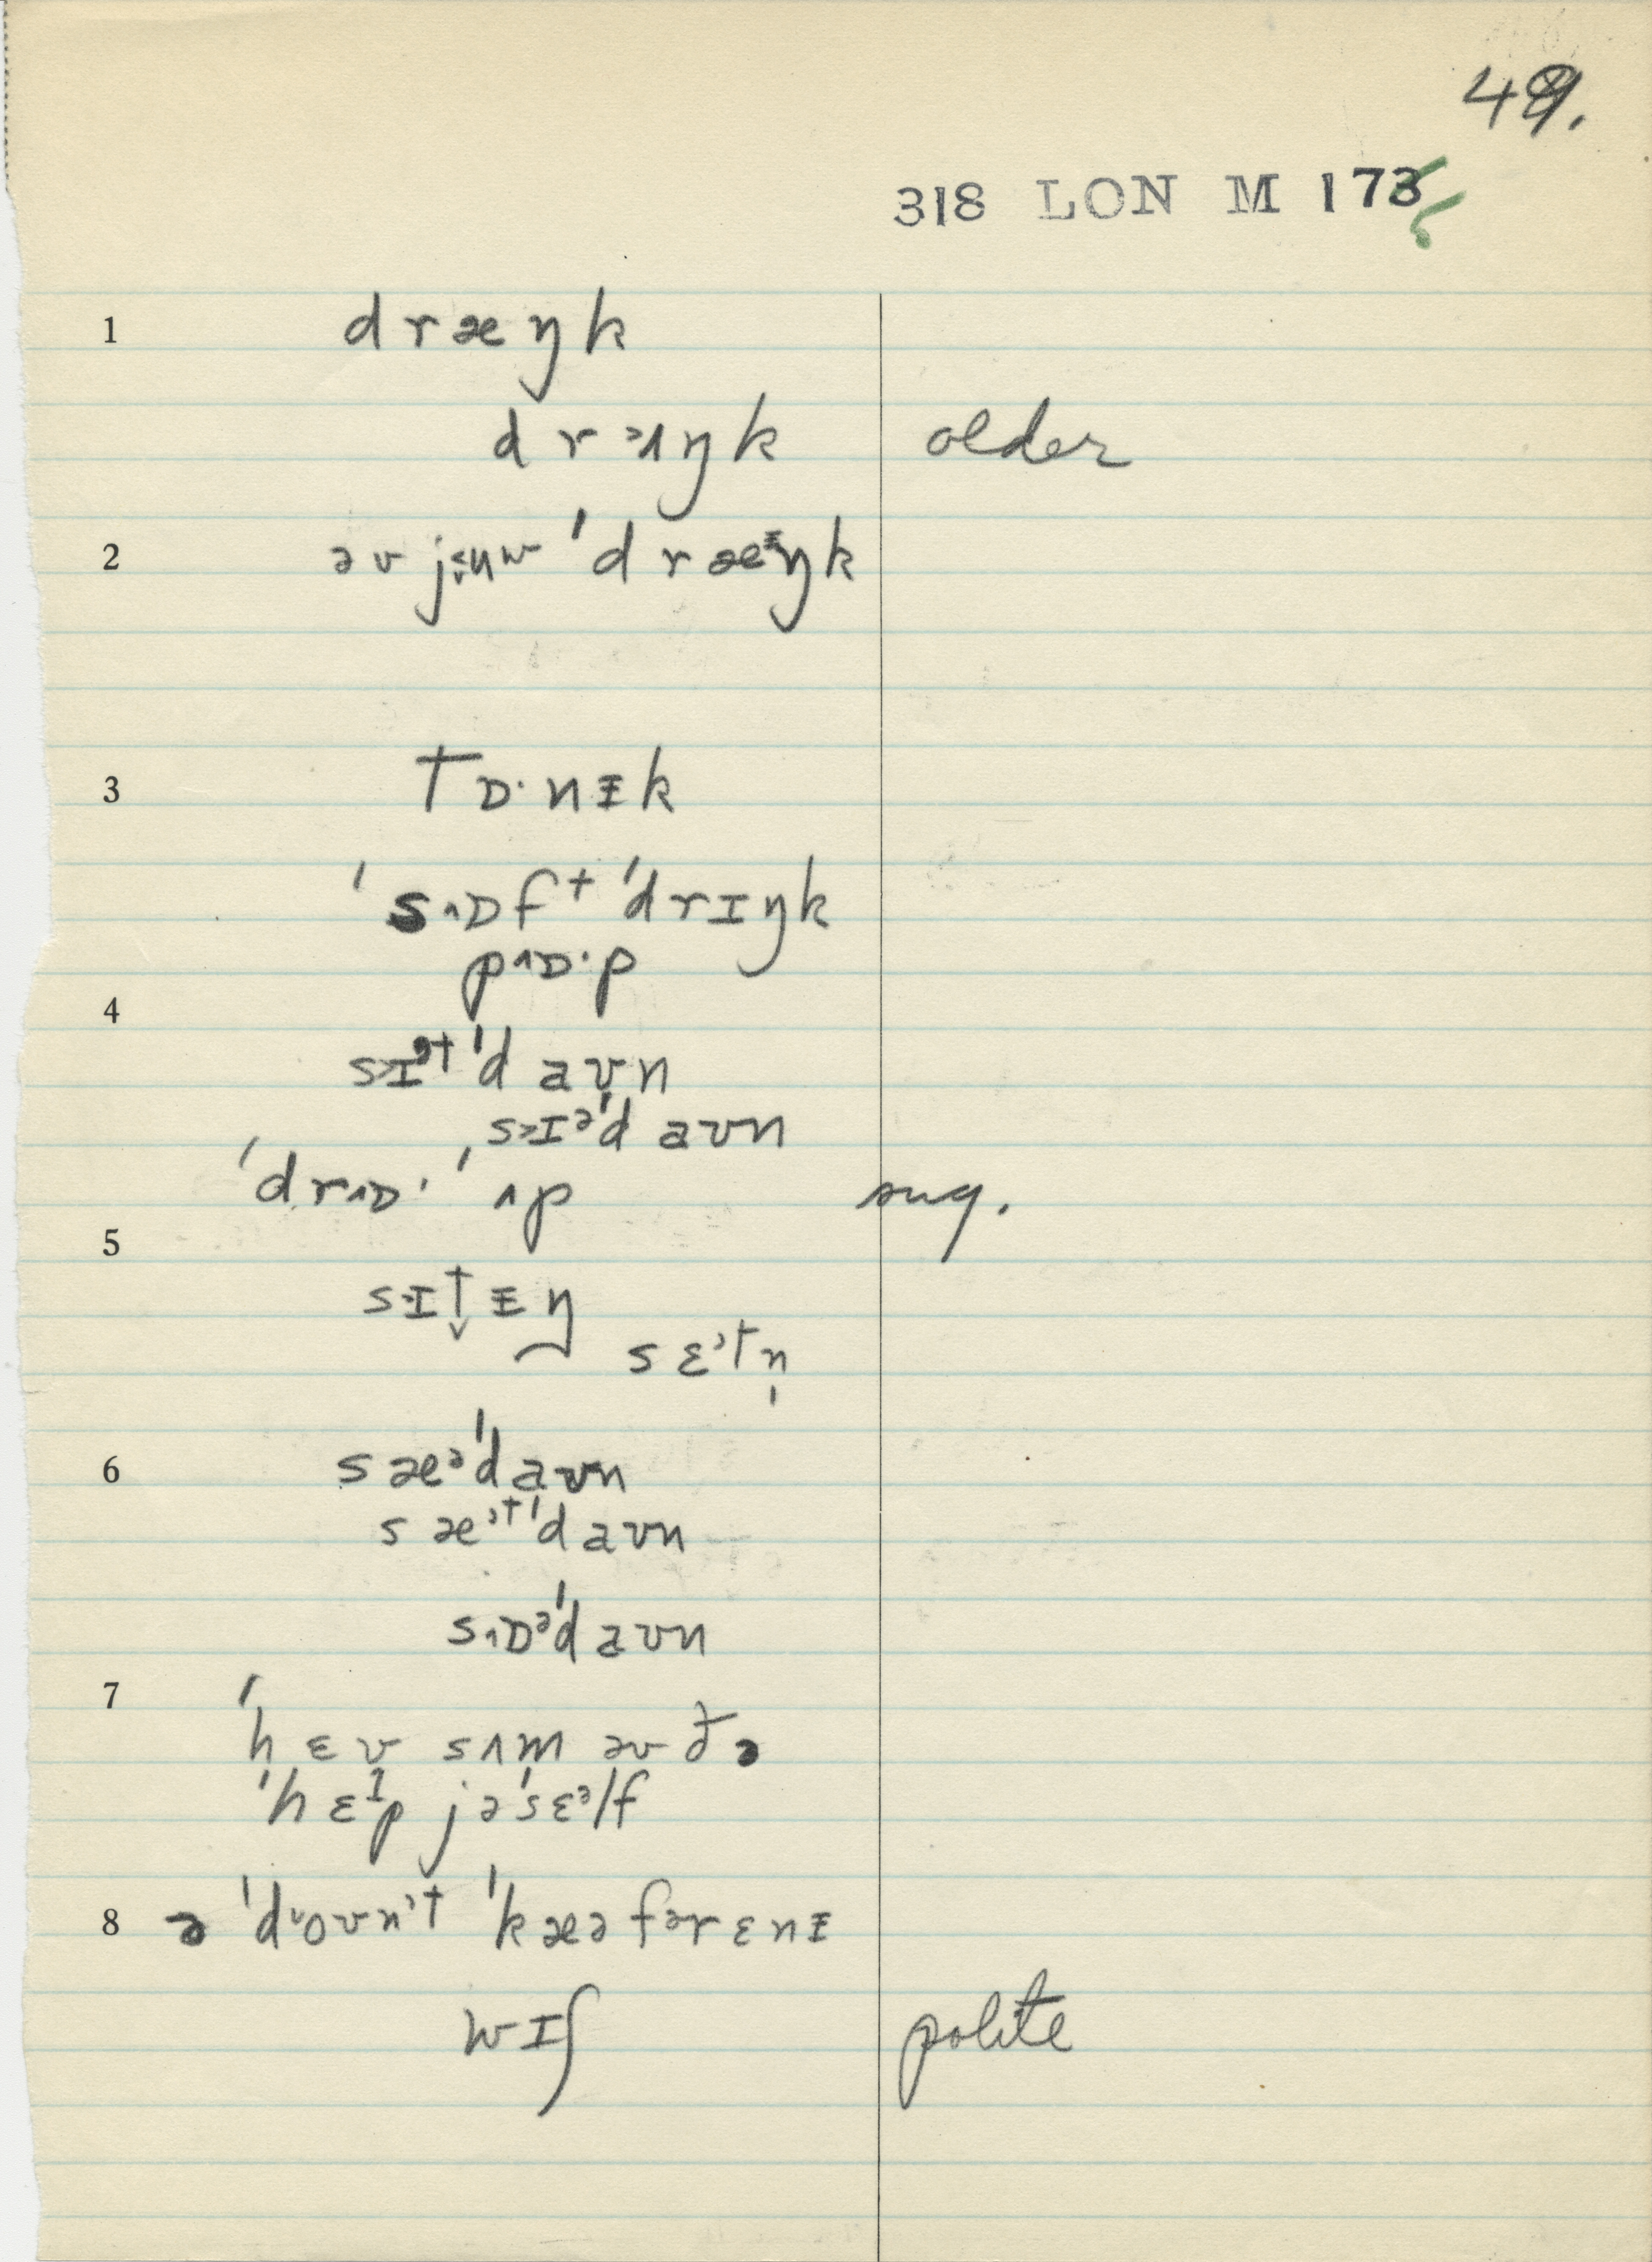 49.
318 LON M 173
1 dræŋk
drɜʌŋk older
2 əv jʉw ˈdræᵻŋk
3 tɒ·nᵻk
ˈsʌɒft ˈdrɪŋk
pʌɒ·p
4
sɪᵊᵗˈdaʊn
sɪᵊˈdaʊn
ˈdrʌɒ· ˈʌp sug.
5
sɪt̬ᵻŋ
sɛᵊtn̩
6 sæᵊˈdaʊn
sæᵊᵗˈdaʊn
sʌɒᵊˈdaʊn
7
ˈhɛv sʌm əv ðə
ˈhɛlp jəˈsɛᵊlf
8 ə ˈdoʊnᵊt ˈkæə fər ɛnᵻ
wɪʃ polite